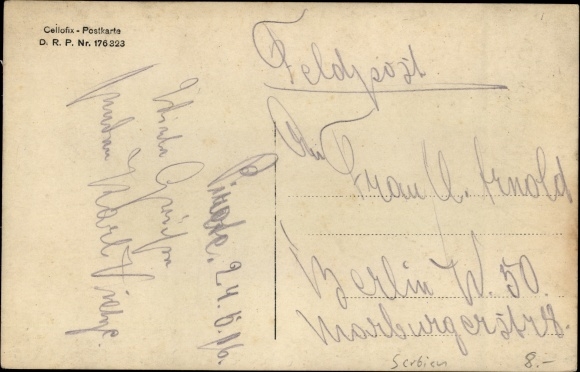 Cellofix - Postkarte
D. R. P. Nr. 176323
Feldpost
An
Frau A. Arnold
Berlin W. 50.
Marburgerstr 8.
Pirot, 24.5.16.
Karl
Serbien
8.-